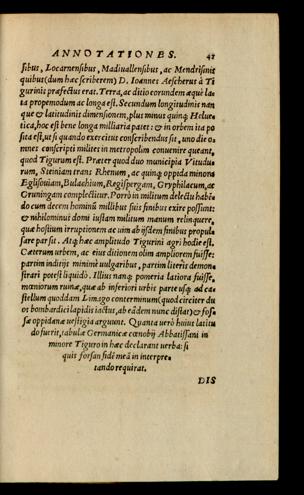 ANNOTATIONES. 41
sibus, Locarnensibus, Madiuallensibus, ac Mendrisinis
quibus (dum hæc scriberem) D. Ioannes Aescherus à Ti
gurinis præfectus erat. Terra, ac ditio eorundem æquè la-
ta propemodum ac longa est. Secundum longitudinis nan
que & latitudinis dimensionem, plus minus quinq; Helue
tica, hoc est bene longa milliaria patet: & in orbem ita po
sita est, ut si quando exercitus conscribendus sit, uno die o-
mnes conscripti milites in metropolim conuenire queant,
quod Tigurum est. Præter quod duo municipia Vitudu
rum, Steiniam trans Rhenum, ac quinq; oppida minora
Eglisouiam, Bulachium, Regispergam, Gryphilacum, ac
Gruningam complectitur. Porrò in militum delectu habē-
do cum decem hominū millibus suis finibus exire possint:
& nihilominus domi iustam militum manum relinquere,
quæ hostium irruptionem ac uim ab ijsdem finibus propul
sare par sit. Atq; hæc amplitudo Tigurini agri hodie est.
Cæterum urbem, ac eius ditionem olim ampliorem fuisse:
partim indicijs minimè uulgaribus, partim literis demon-
strari potest liquidò. Illius nanq; pomeria latiora fuisse,
mœniorum ruinæ, quæ ab inferiori urbis parte usq; ad ca-
stellum quoddam Limago conterminum (quod circiter du
os bombardici lapidis iactus, ab eâdem nunc distat) & fos-
sæ oppidanæ uestigia arguunt. Quanta uerò huius latitu
do fuerit, tabulæ Germanicæ cœnobij Abbatissani in
minore Tiguro in hæc declarant uerba: si
quis forsan fidē meā in interpre-
tando requirat.
DIS